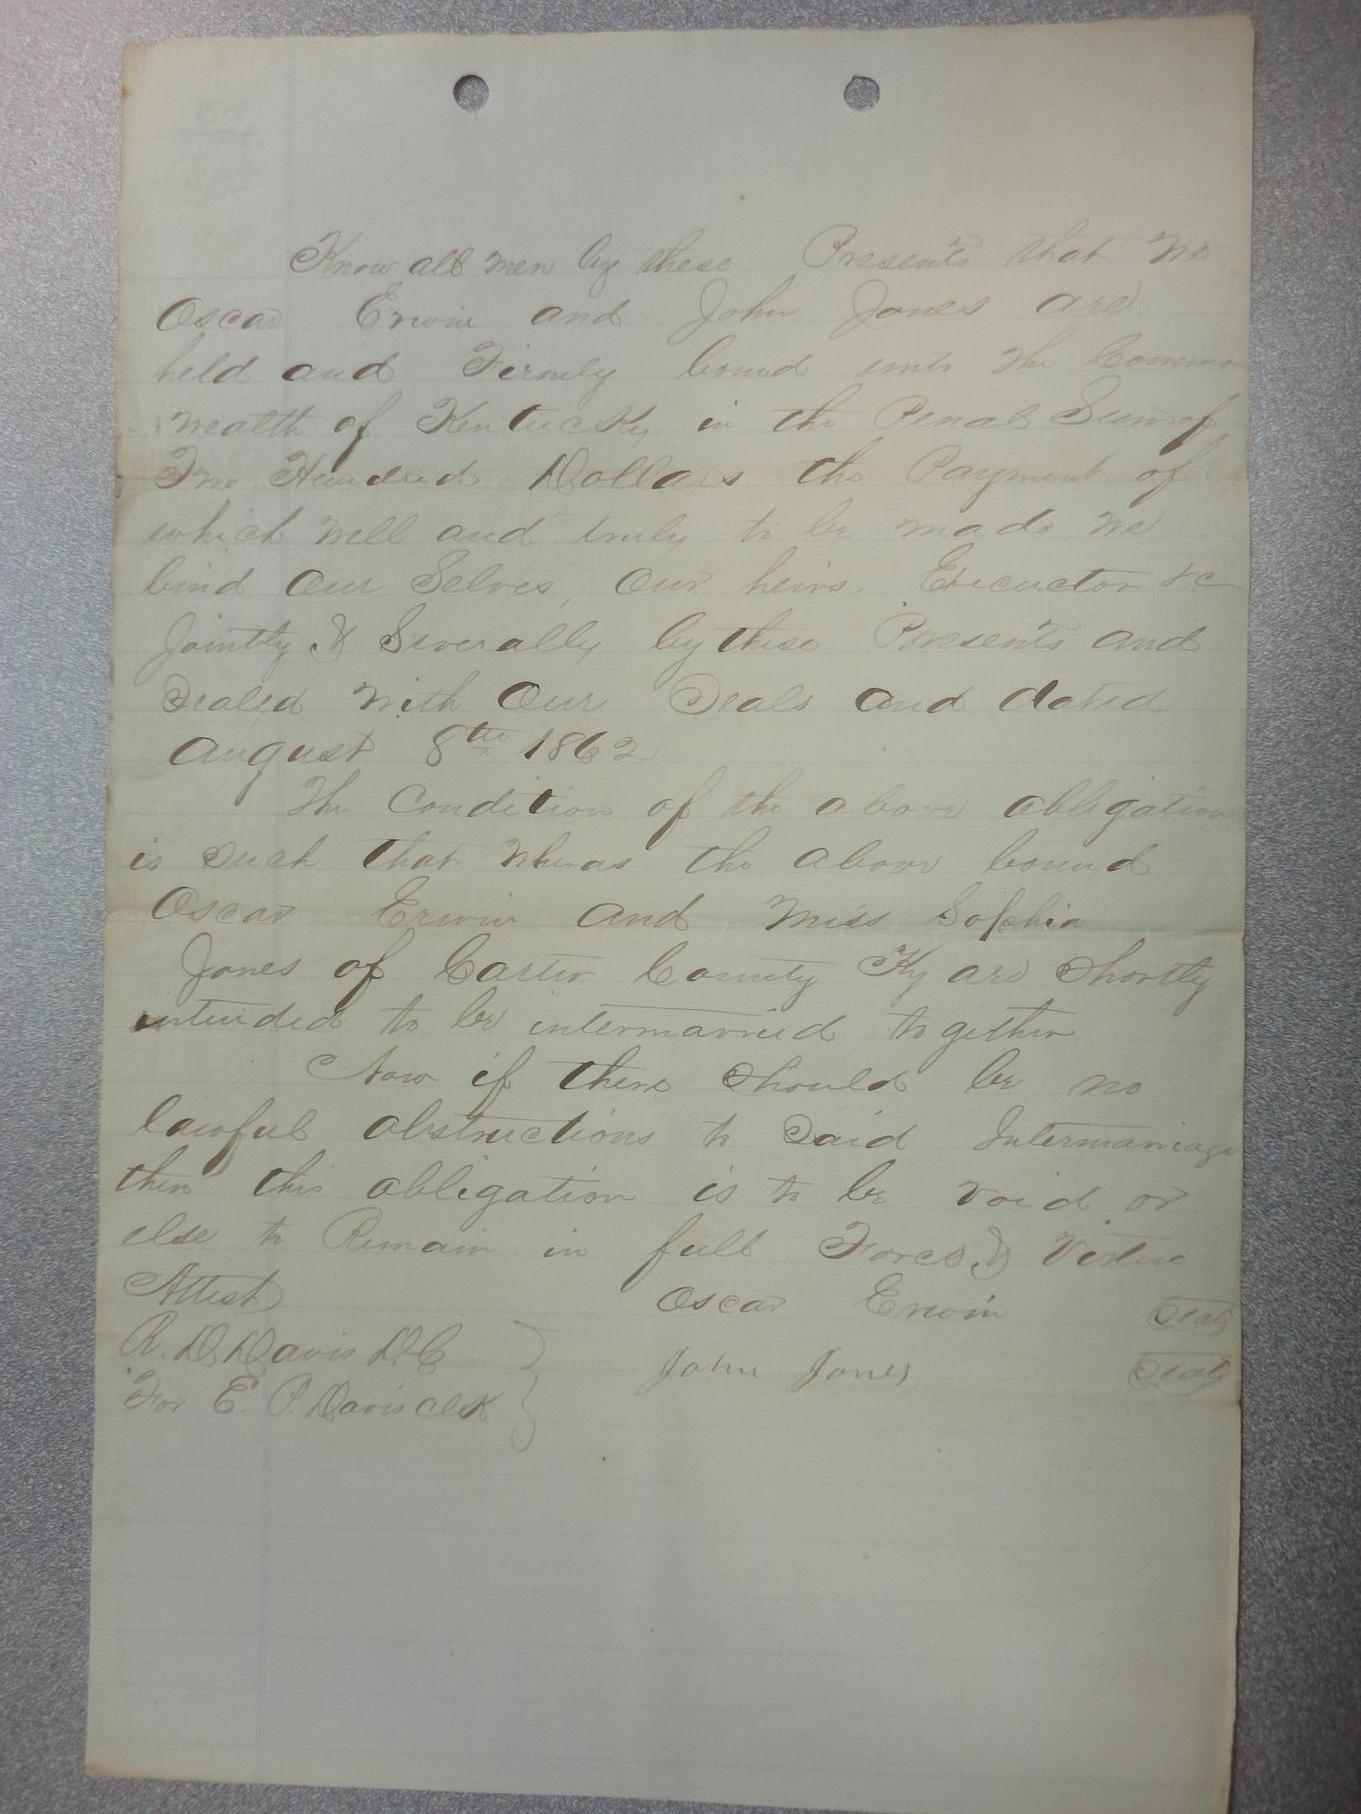 Know all men by these Presents that we
Oscar Erwin and John Jones are
held and Firmly bound unto the Common
wealth of Kentucky in the Penal Sum of
Two Hundred Dollars the Payment of
which well and truly to be made we
bind Our Selves, Our heirs. Executor &c
Jointly & Severally by these Presents and
Sealed with Our Seals and dated
August 8th 1862
The Condition of the above obligation
is Such that Wheras the above bound
Oscar Erwin and Miss Sophia
Jones of Carter County Ky are Shortly
intended to be intermarried together
Now if there Should be no
lawful obstructions to Said Intermarriage
then this obligation is to be void or
else to Remain in full Force & Virtue
Attest Oscar Erwin Seal
R. D. Davis D.C John Jones Seal
For E. P. Davis Clk